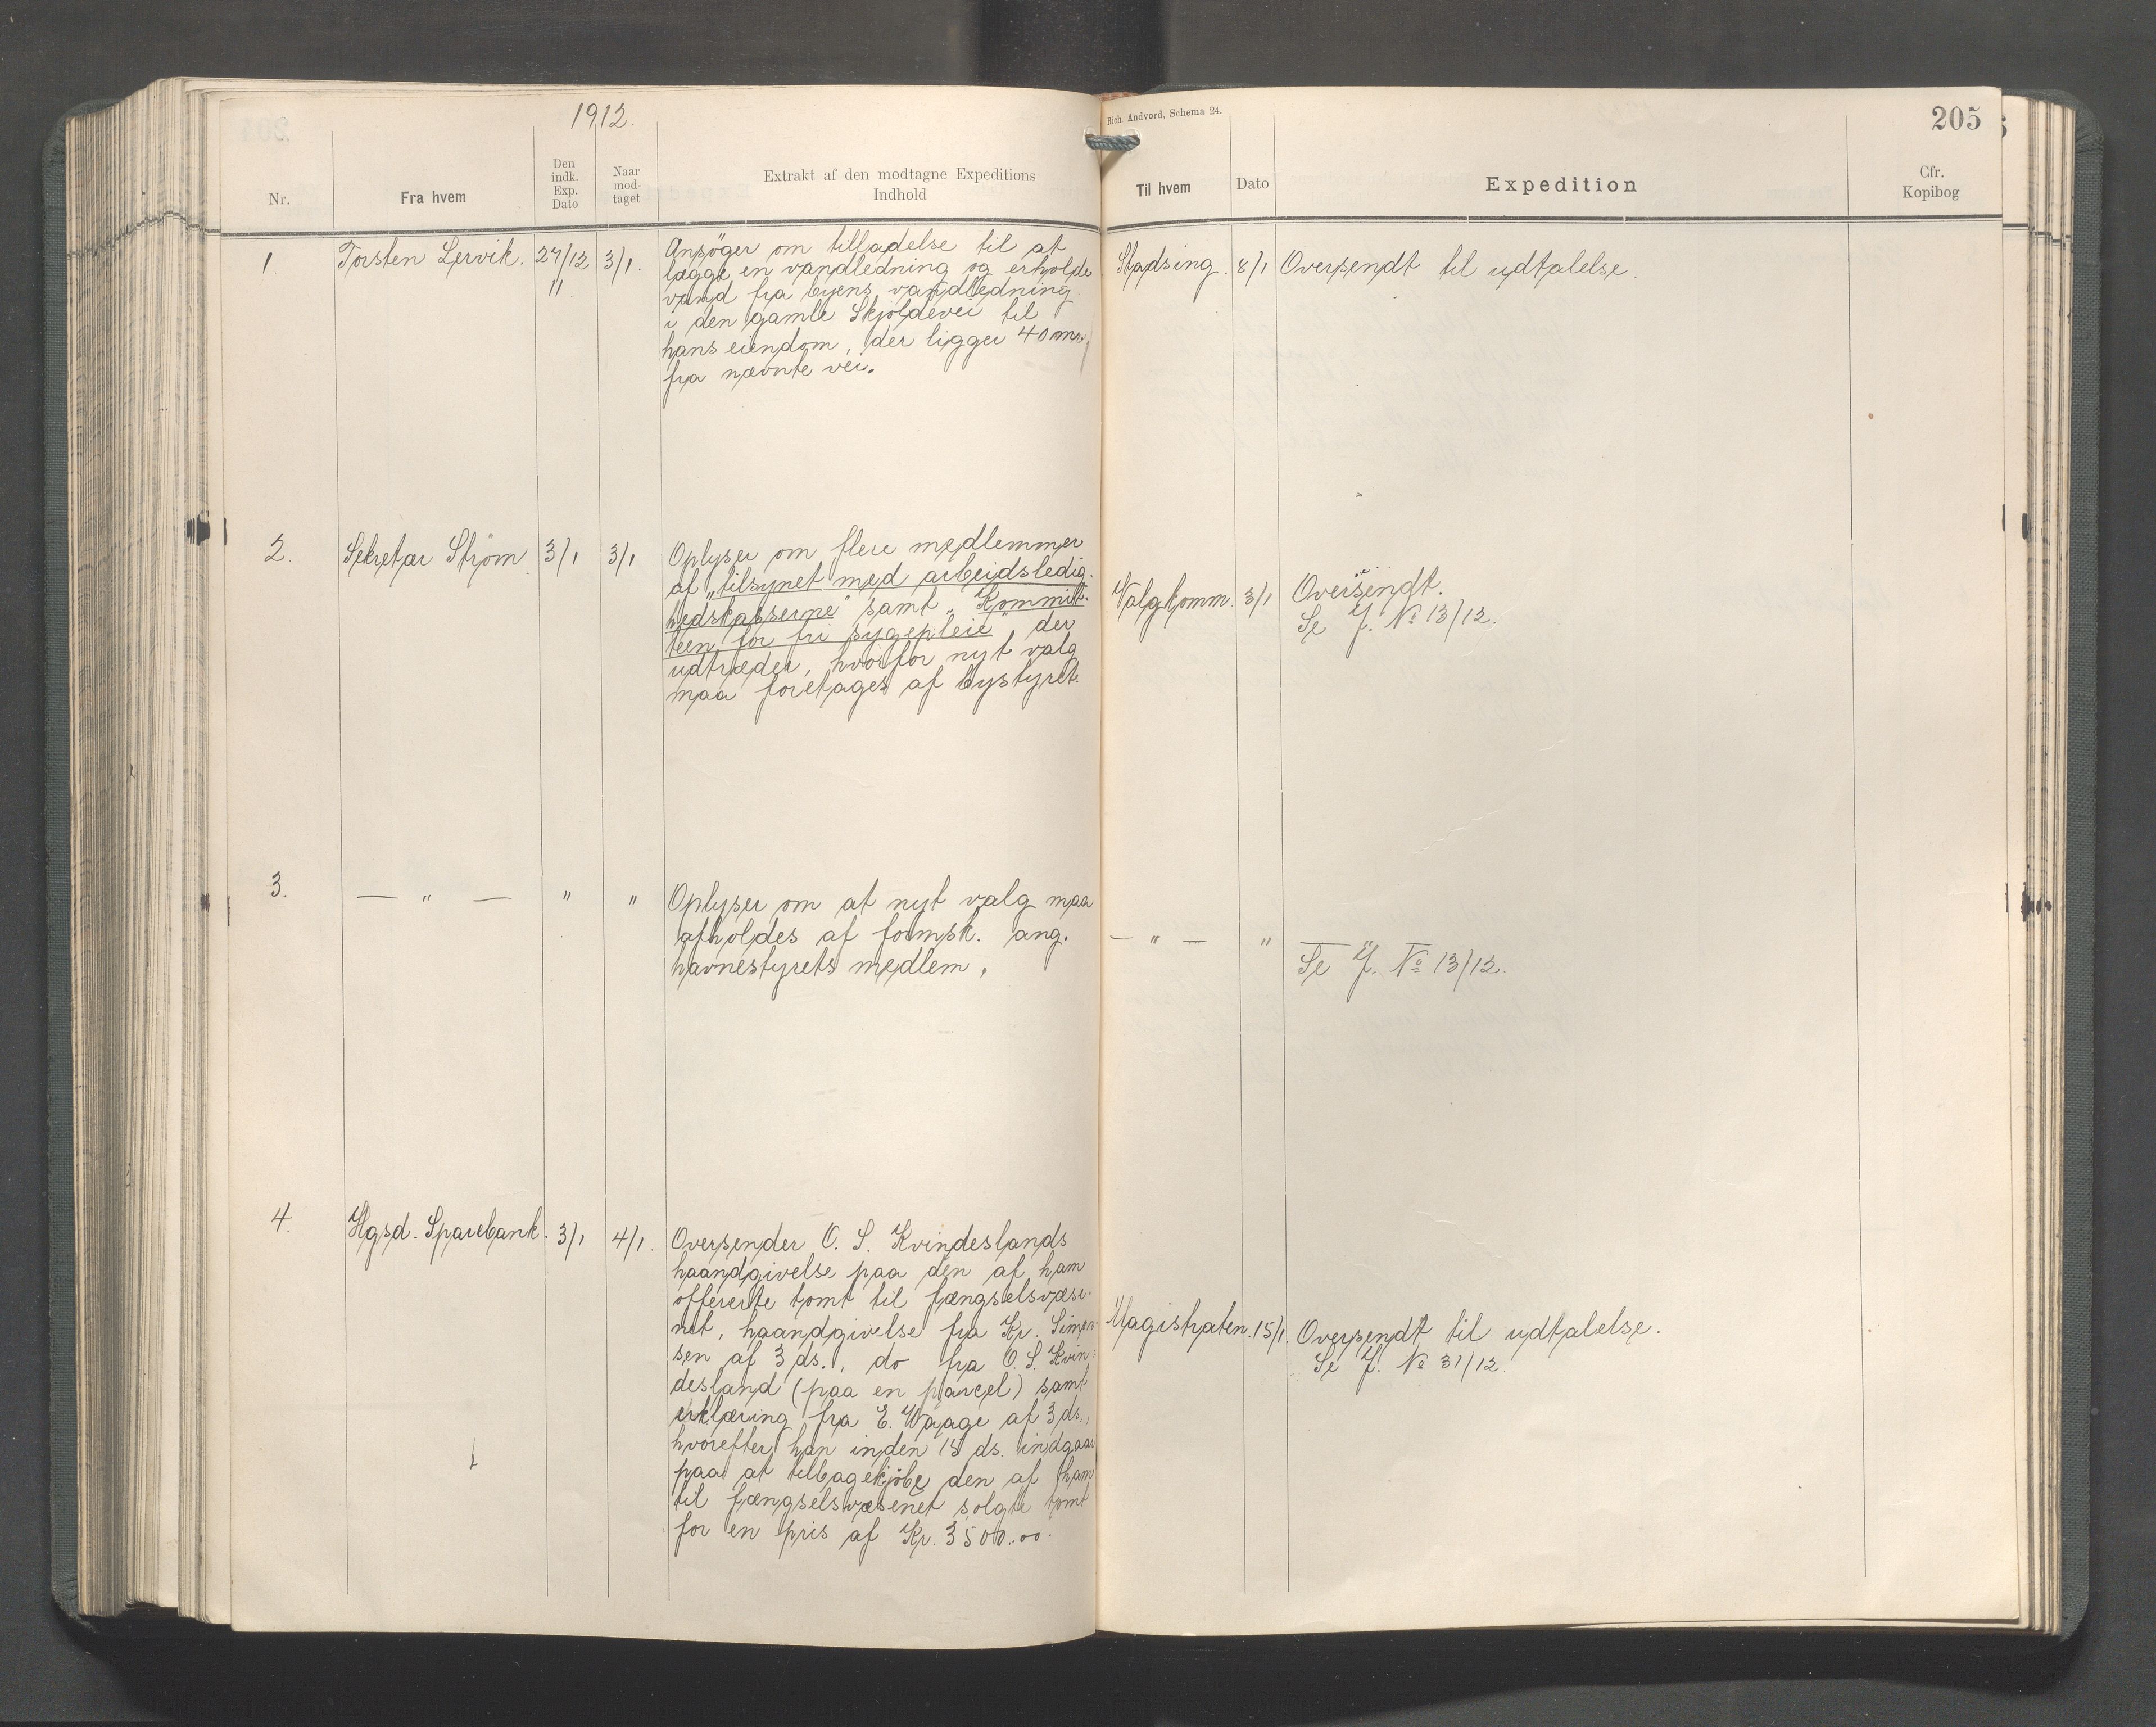 1912.
Rich. Andvord, Schema 24.
205
Nr.
Fra hvem
Den
indk.
Exp.
Dato
Naar
mod-
taget
Extrakt af den modtagne Expeditions
Indhold
Til hvem
Dato
Expedition
Cfr.
Kopibog
1.
Torsten Lervik.
27/12
11
3/1.
Ansöger om tilladelse til at
lægge en vandledning og erholde
vand fra byens vandledning
i den gamle Skjoldevei til
hans eiendom, der ligger 40 mr.
fra nævnte vei.
Stadsing.
8/1
Oversendt til udtalelse.
2.
Sekretær Ström
3/1
3/1
Oplyser om flere medlemmer
af „tilsynet med arbeidsledig-
hedskasserne" samt „Kommit-
teen for fri sygepleie" der
udtræder, hvorfor nyt valg
maa foretages af bystyret.
Valgkomm.
3/1
Oversendt.
Se J. No 13/12.
3.
— " —
"
"
Oplyser om at nyt valg maa
afholdes af formsk. ang.
havnestyrets medlem.
— " —
"
— " —
Se J. No 13/12.
4.
Hgsd. Sparebank.
3/1
4/1.
Oversender O. S. Kvindeslands
haandgivelse paa den af ham
offererte tomt til fængselsvæse-
net, haandgivelse fra Kr. Simon-
sen af 3 ds., do fra O. S. Kvin-
desland (paa en parcel) samt
erklæring fra E. Waage af 3 ds.,
hvorefter han inden 15 ds. indgaar
paa at tilbagekjöbe den af ham
til fængselsvæsenet solgte tomt
for en pris af Kr. 3500.00.
Magistraten.
15/1.
Oversendt til udtalelse.
Se J. No 31/12.